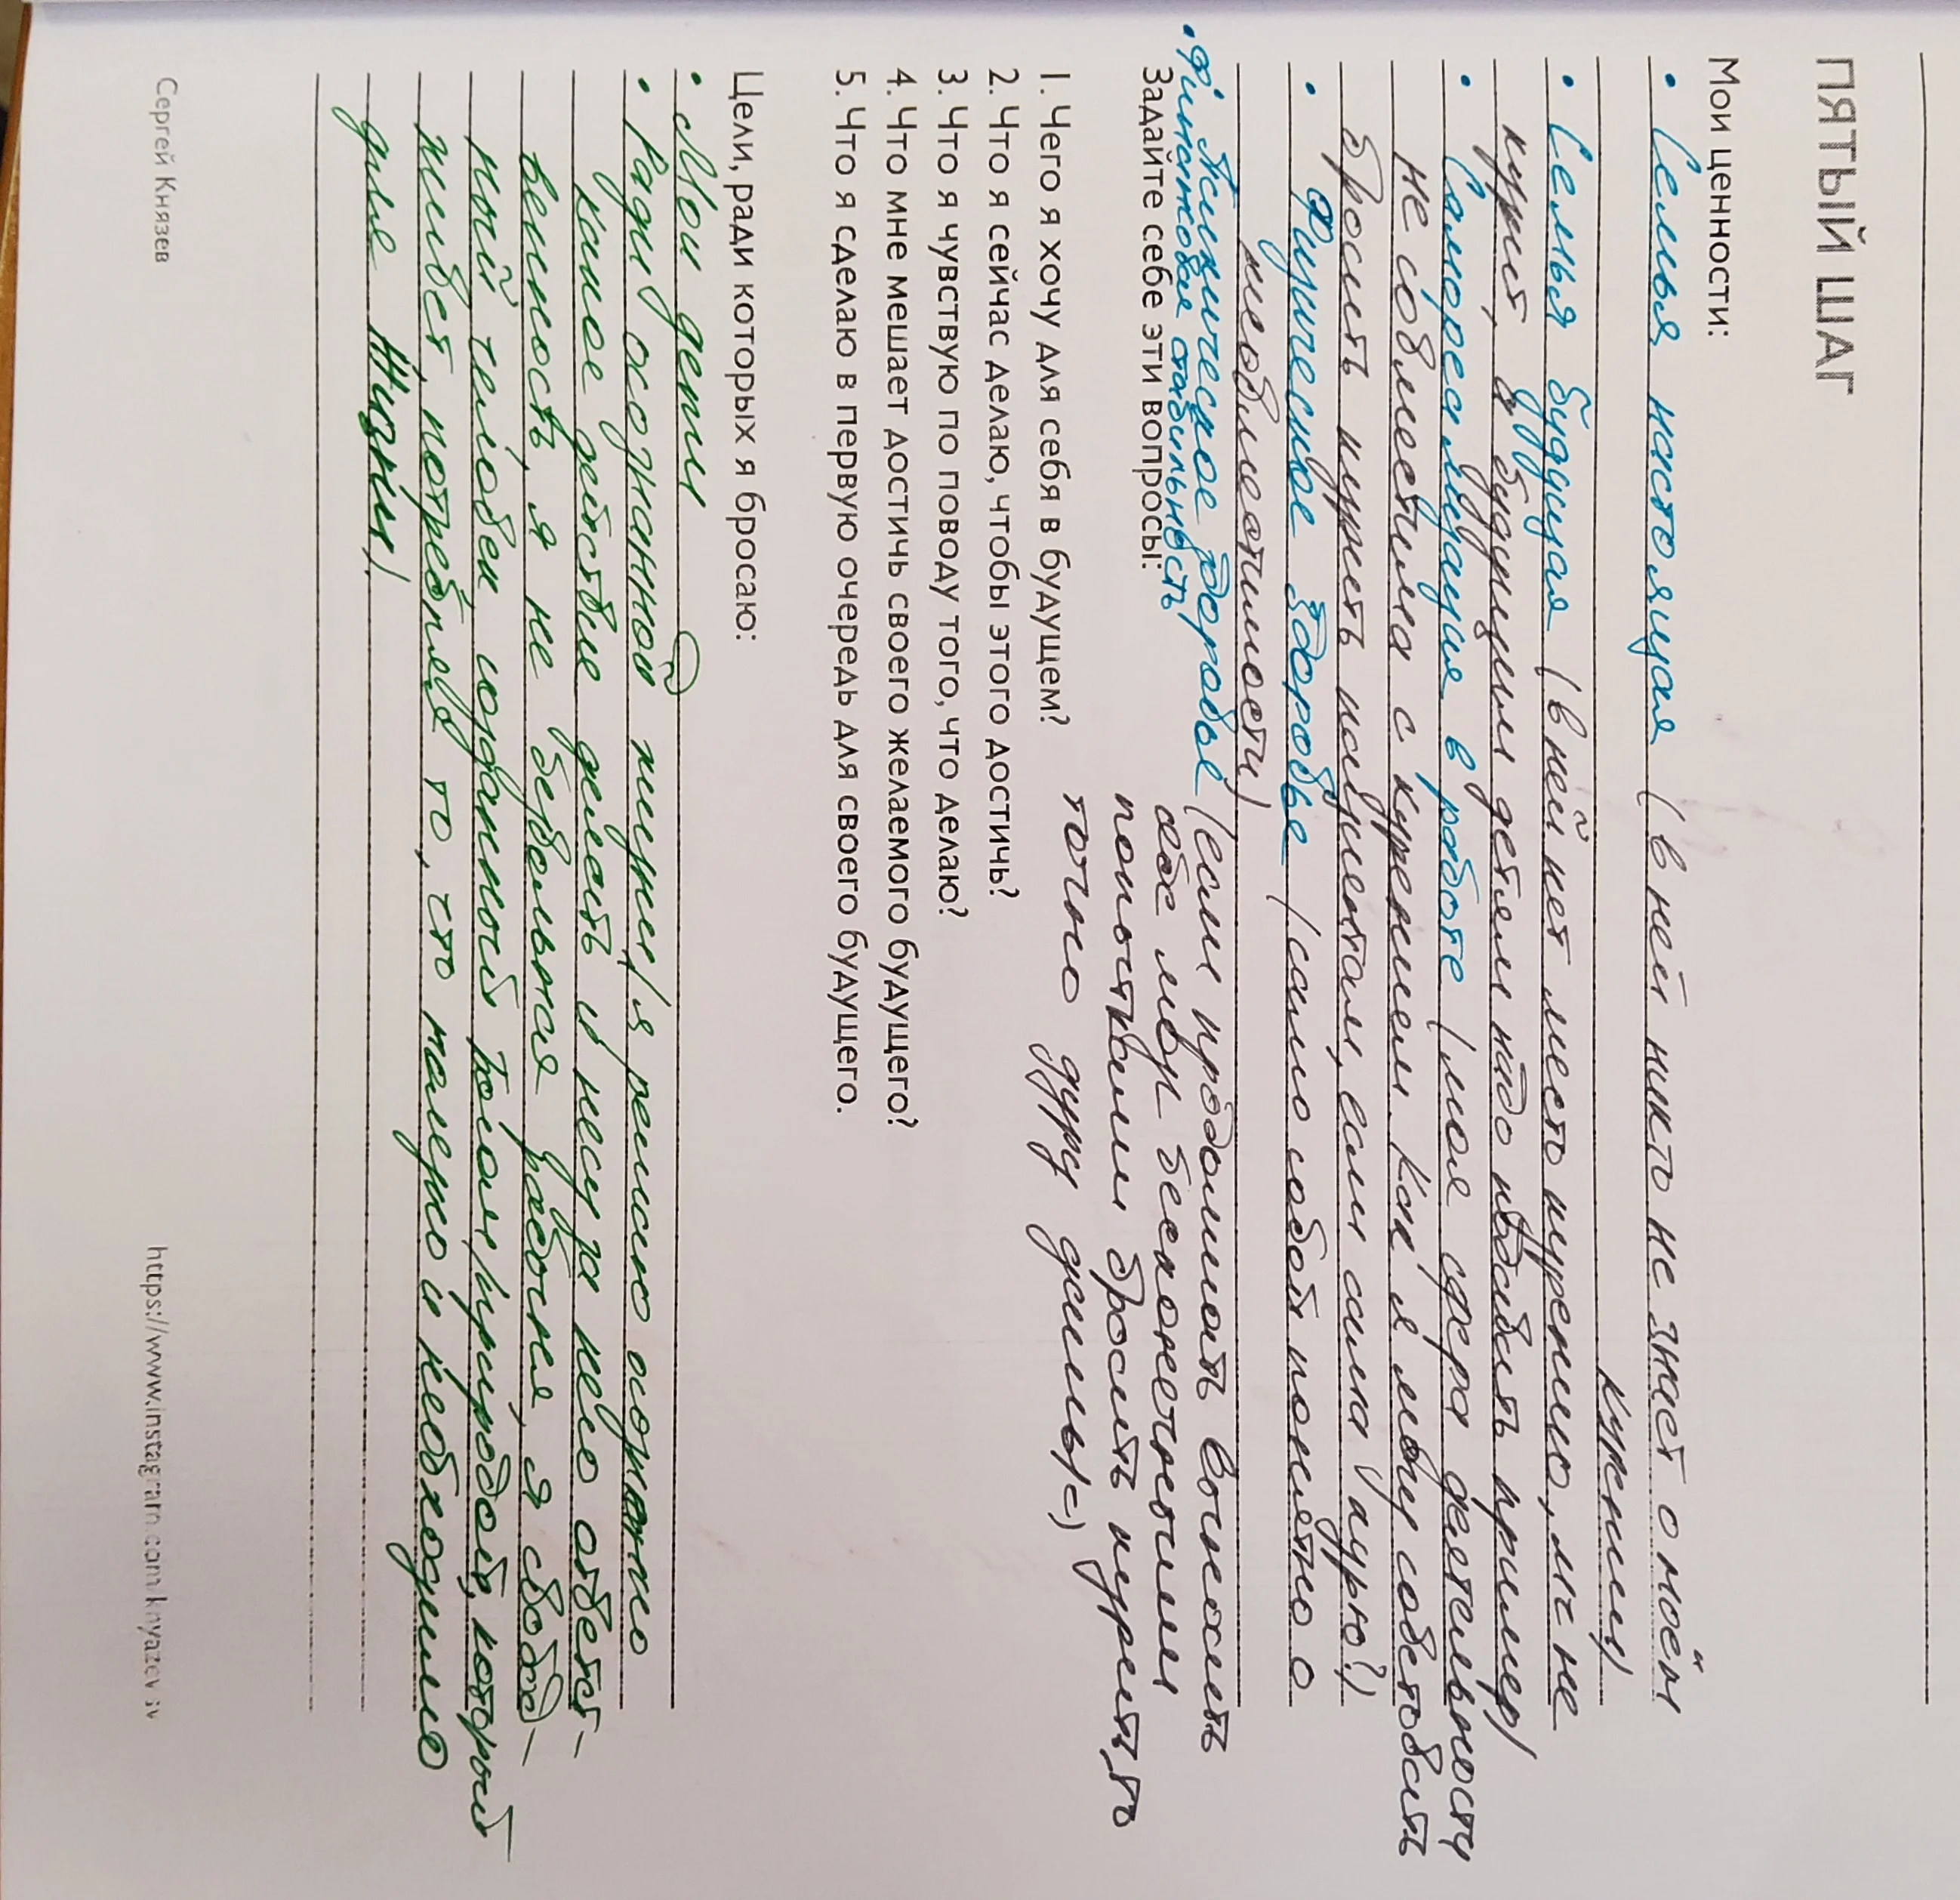 ПЯТЫЙ ШАГ
Мои ценности:
• Семья настоящая (в ней никто не знает о моём
курении)
• Семья будущая (в ней нет место курению, мч не
курит, а будущим детям надо подавать пример)
• Самореализация в работе (моя сфера деятельности
не совместима с курением. Как я могу советовать
бросить курить пациентам, если сама курю?)
• Физическое здоровье (само собой понятно о
несовместимости)
• Психическое здоровье (если продолжать выносить
себе мозг бесконечными
попытками бросить курить, то
точно дуру дашь =)
• Финансовая стабильность
Задайте себе эти вопросы:
1. Чего я хочу для себя в будущем?
2. Что я сейчас делаю, чтобы этого достичь?
3. Что я чувствую по поводу того, что делаю?
4. Что мне мешает достичь своего желаемого будущего?
5. Что я сделаю в первую очередь для своего будущего.
Цели, ради которых я бросаю:
• Мои дети
• Ради осознанной жизни (я решаю осознанно
какое действие делать и несу за него ответст-
венность, я не безвольная рабыня, я свобод-
ный человек созданный Богом/природой, который
живёт, потребляя то, что полезно и необходимо
для Жизни!
Сергей Князев
https://www.instagram.com/knyazev.iv